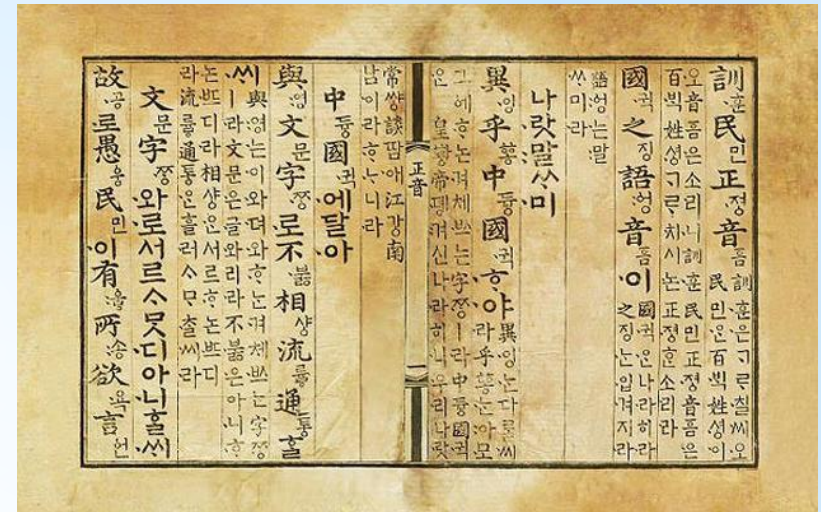 訓훈民민正졍音ᅙᅳᆷ 訓훈은ᄀᆞᄅᆞ칠씨오
民민은百ᄇᆡᆨ姓셩이
오音ᅙᅳᆷ은소리니訓훈民민正졍音ᅙᅳᆷ은
百ᄇᆡᆨ姓셩ᄀᆞᄅᆞ치시논正졍ᄒᆞᆫ소리라
國귁之징語엉音ᅙᅳᆷ이 國귁은나라히라
之징는입겨지라
語엉는말
ᄊᆞ미라
나랏말ᄊᆞ미
異잉乎ᅘᅩᆼ中듕國귁ᄒᆞ야 異잉는다ᄅᆞᆯ씨
라乎ᅘᅩᆼ는아모
그ᅌᅦᄒᆞ논겨체ᄡᅳ는字ᄍᆞᆼㅣ라中듕國귁
은皇ᅘᅪᇰ帝뎽겨신나라히니우리나랏
正音
一
常쌰ᇰ談땀애江가ᇰ南
남이라ᄒᆞᄂᆞ니라
中듕國귁에달아
與영文문字ᄍᆞᆼ로不붏相샤ᇰ流류ᇢ通토ᇰᄒᆞᆯ
ᄊᆡ 與영는이와뎌와ᄒᆞ는겨체ᄡᅳ는字ᄍᆞᆼ
ㅣ라文문은글와리라不붏은아니ᄒᆞ
논ᄠᅳ디라相샤ᇰ은서르ᄒᆞ논ᄠᅳ디
라流류ᇢ通토ᇰ은흘러ᄉᆞᄆᆞᆺᄎᆞᆯ씨라
文문字ᄍᆞᆼ와로서르ᄉᆞᄆᆞᆺ디아니ᄒᆞᆯᄊᆡ
故공로愚ᅌᅮᆼ民민이有우ᇢ所송欲욕言ᅌᅥᆫ